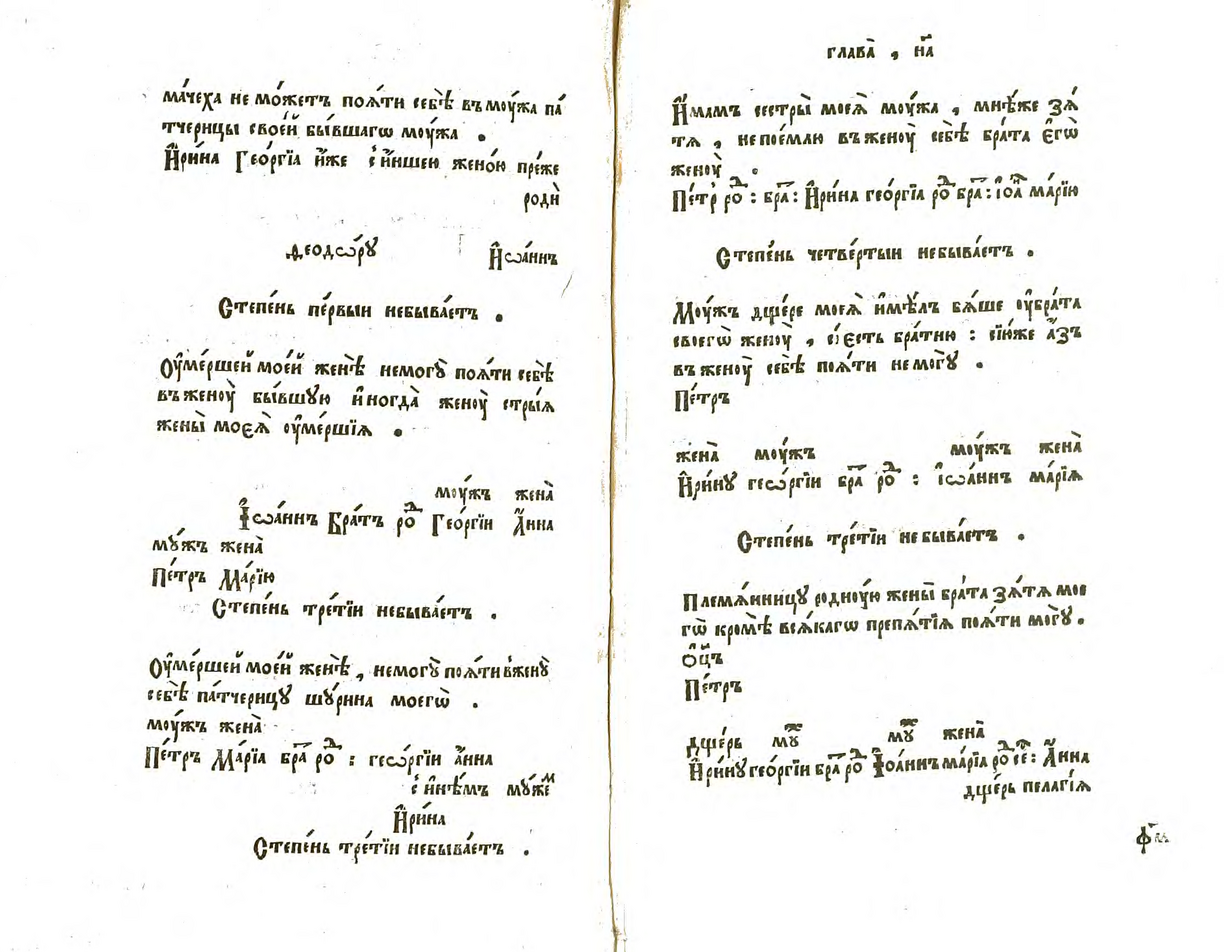 ма́чеха не мо́жетъ поѧ́ти себѣ̀ въ моу́жа па́
тчерицы своеѝ бы́вшагѡ моу́жа .
И҆ри́на Гео́ргїа и҆́же с и҆́ншею жено́ю пре́же
родѝ
Ѳеодѡ́рꙋ И҆ѡа́ннъ
Степе́нь пе́рвыи небыва́етъ .
Оу҆ме́ршей мое́й женѣ̀ немогꙋ̀ поѧ́ти себѣ̀
въ женоу̀ бы́вшꙋю и҆ногда̀ женоу̀ стры́ѧ
жены̀ моеѧ̀ оу҆ме́ршїѧ .
моу́жъ жена̀
І҆ѡа́ннъ Бра́тъ роⷣ Гео́ргїи А҆́нна
мꙋ́жъ жена̀
Пе́тръ Ма́рїю
Степе́нь тре́тїи небыва́етъ .
Оу҆ме́ршей мое́й женѣ̀ , немогꙋ̀ поѧ́ти в женꙋ̀
себѣ̀ па́тчерицꙋ шꙋ́рина моегѡ̀ .
моу́жъ жена̀
Пе́тръ Ма́рїа бра̑ роⷣ : геѡ́ргїи а҆́нна
с и҆нѣ́мъ мꙋ́жеⷨ
И҆ри́на
Степе́нь тре́тїи небыва́етъ .
глава̀ , н҃а
И҆́мамъ сестры̀ моеѧ̀ моу́жа , мнѣ́же зѧ́
тѧ , непое́млю въ женоу̀ себѣ̀ бра́та є҆гѡ̀
женоу̀ .
Пе́тр роⷣ : бра̑ : И҆ри́на гео́ргїа роⷣ бра̑ : і҆ѡа́н ма́рїю
Степе́нь четве́ртыи небыва́етъ .
Моу́жъ дще́ре моеѧ̀ и҆мѣ́лъ бѧ́ше оу҆бра́та
своегѡ̀ женоу̀ , сі́есть бра́тню : сїю́же а҆́зъ
въ женоу̀ себѣ̀ поѧ́ти немогꙋ̀ .
Пе́тръ
жена̀ моу́жъ моу́жъ жена̀
И҆ри́нꙋ геѡ́ргїи бра̑ роⷣ : і҆ѡа́ннъ ма́рїѧ
Степе́нь тре́тїи небыва́етъ .
Племѧ́нницꙋ родноу́ю жены̀ бра́та зѧ́тѧ мое
гѡ̀ кромѣ̀ всѧ́кагѡ препѧ́тїѧ поѧ́ти могꙋ̀ .
Ѻ҆ц҃ъ
Пе́тръ
дще́рь мꙋⷤ мꙋⷤ жена̀
И҆ри́нꙋ гео́ргїи бра̑ роⷣ І҆ѻа́ннъ ма́рїа роⷣ сеⷭ : А҆́нна
дще́рь пелагі́ѧ